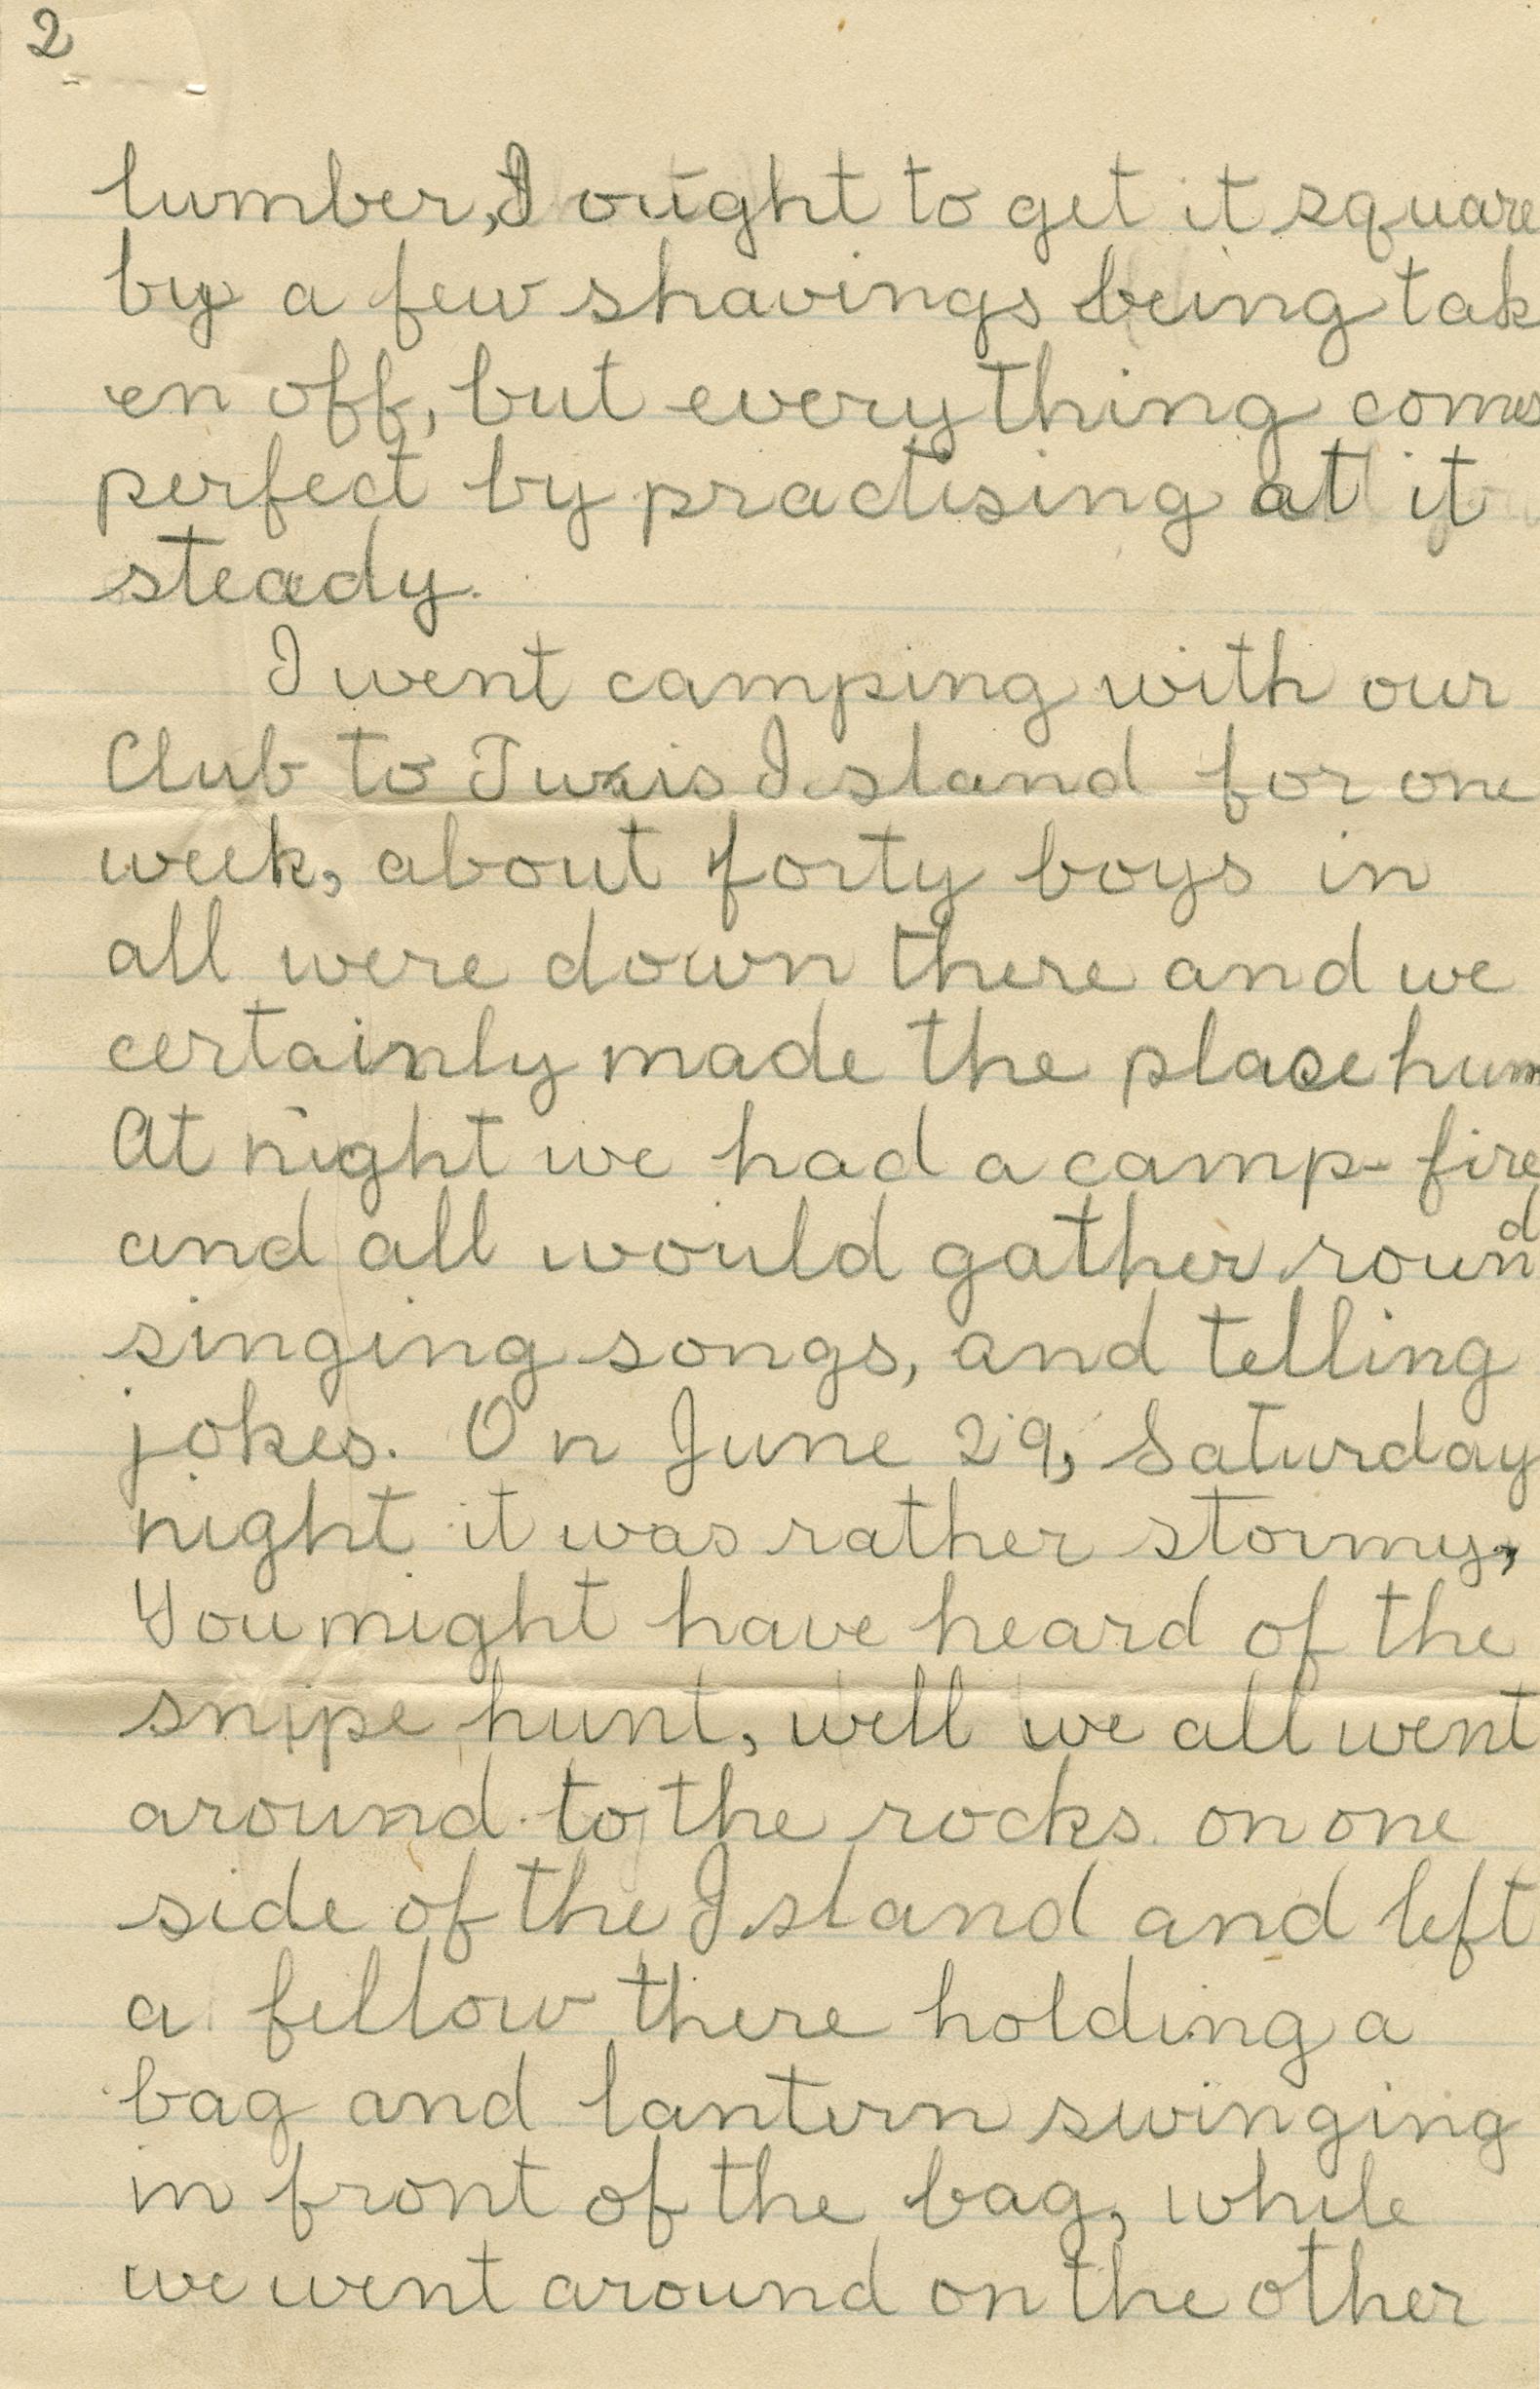 2
lumber, I ought to get it square
by a few shavings being tak
en off, but everything comes
perfect by practising at it
steady.
I went camping with our
Club to Twxis Island for one
week, about forty boys in
all were down there and we
certainly made the place hum
At night we had a camp-fire
and all would gather round
singing songs, and telling
jokes. On June 29, Saturday
night it was rather stormy,
You might have heard of the
snipe hunt, well we all went
around to the rocks on one
side of the Island and left
a fellow there holding a
bag and lantern swinging
in front of the bag, while
we went around on the other